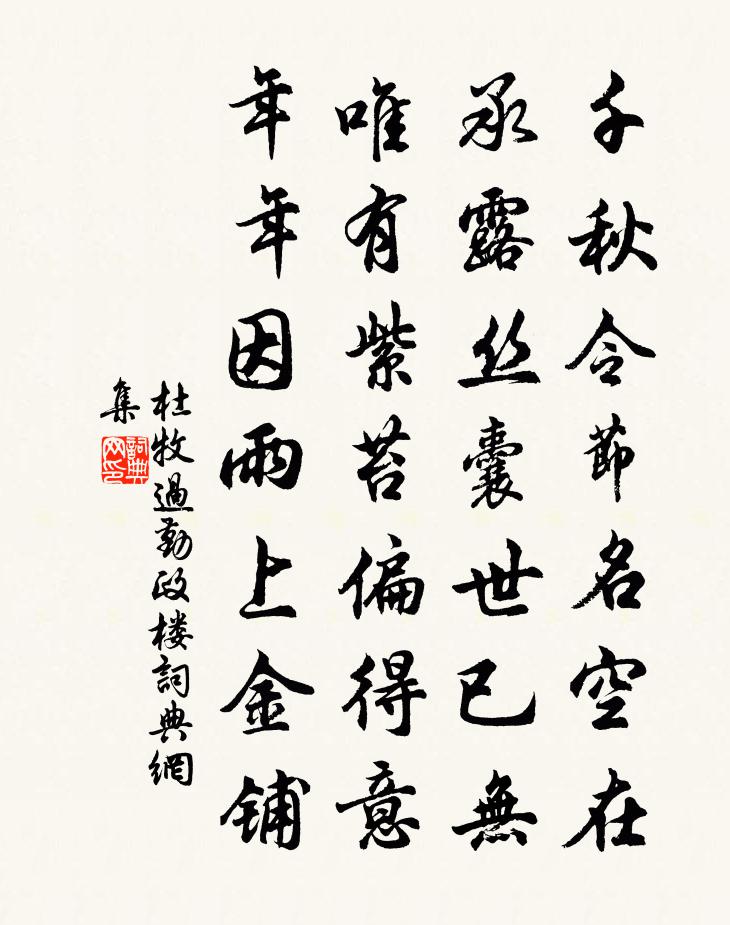 千秋令節名空在
承露丝囊世已無
唯有紫苔偏得意
年年因雨上金铺
杜牧過勤政楼詞典網
集
詞典
网印